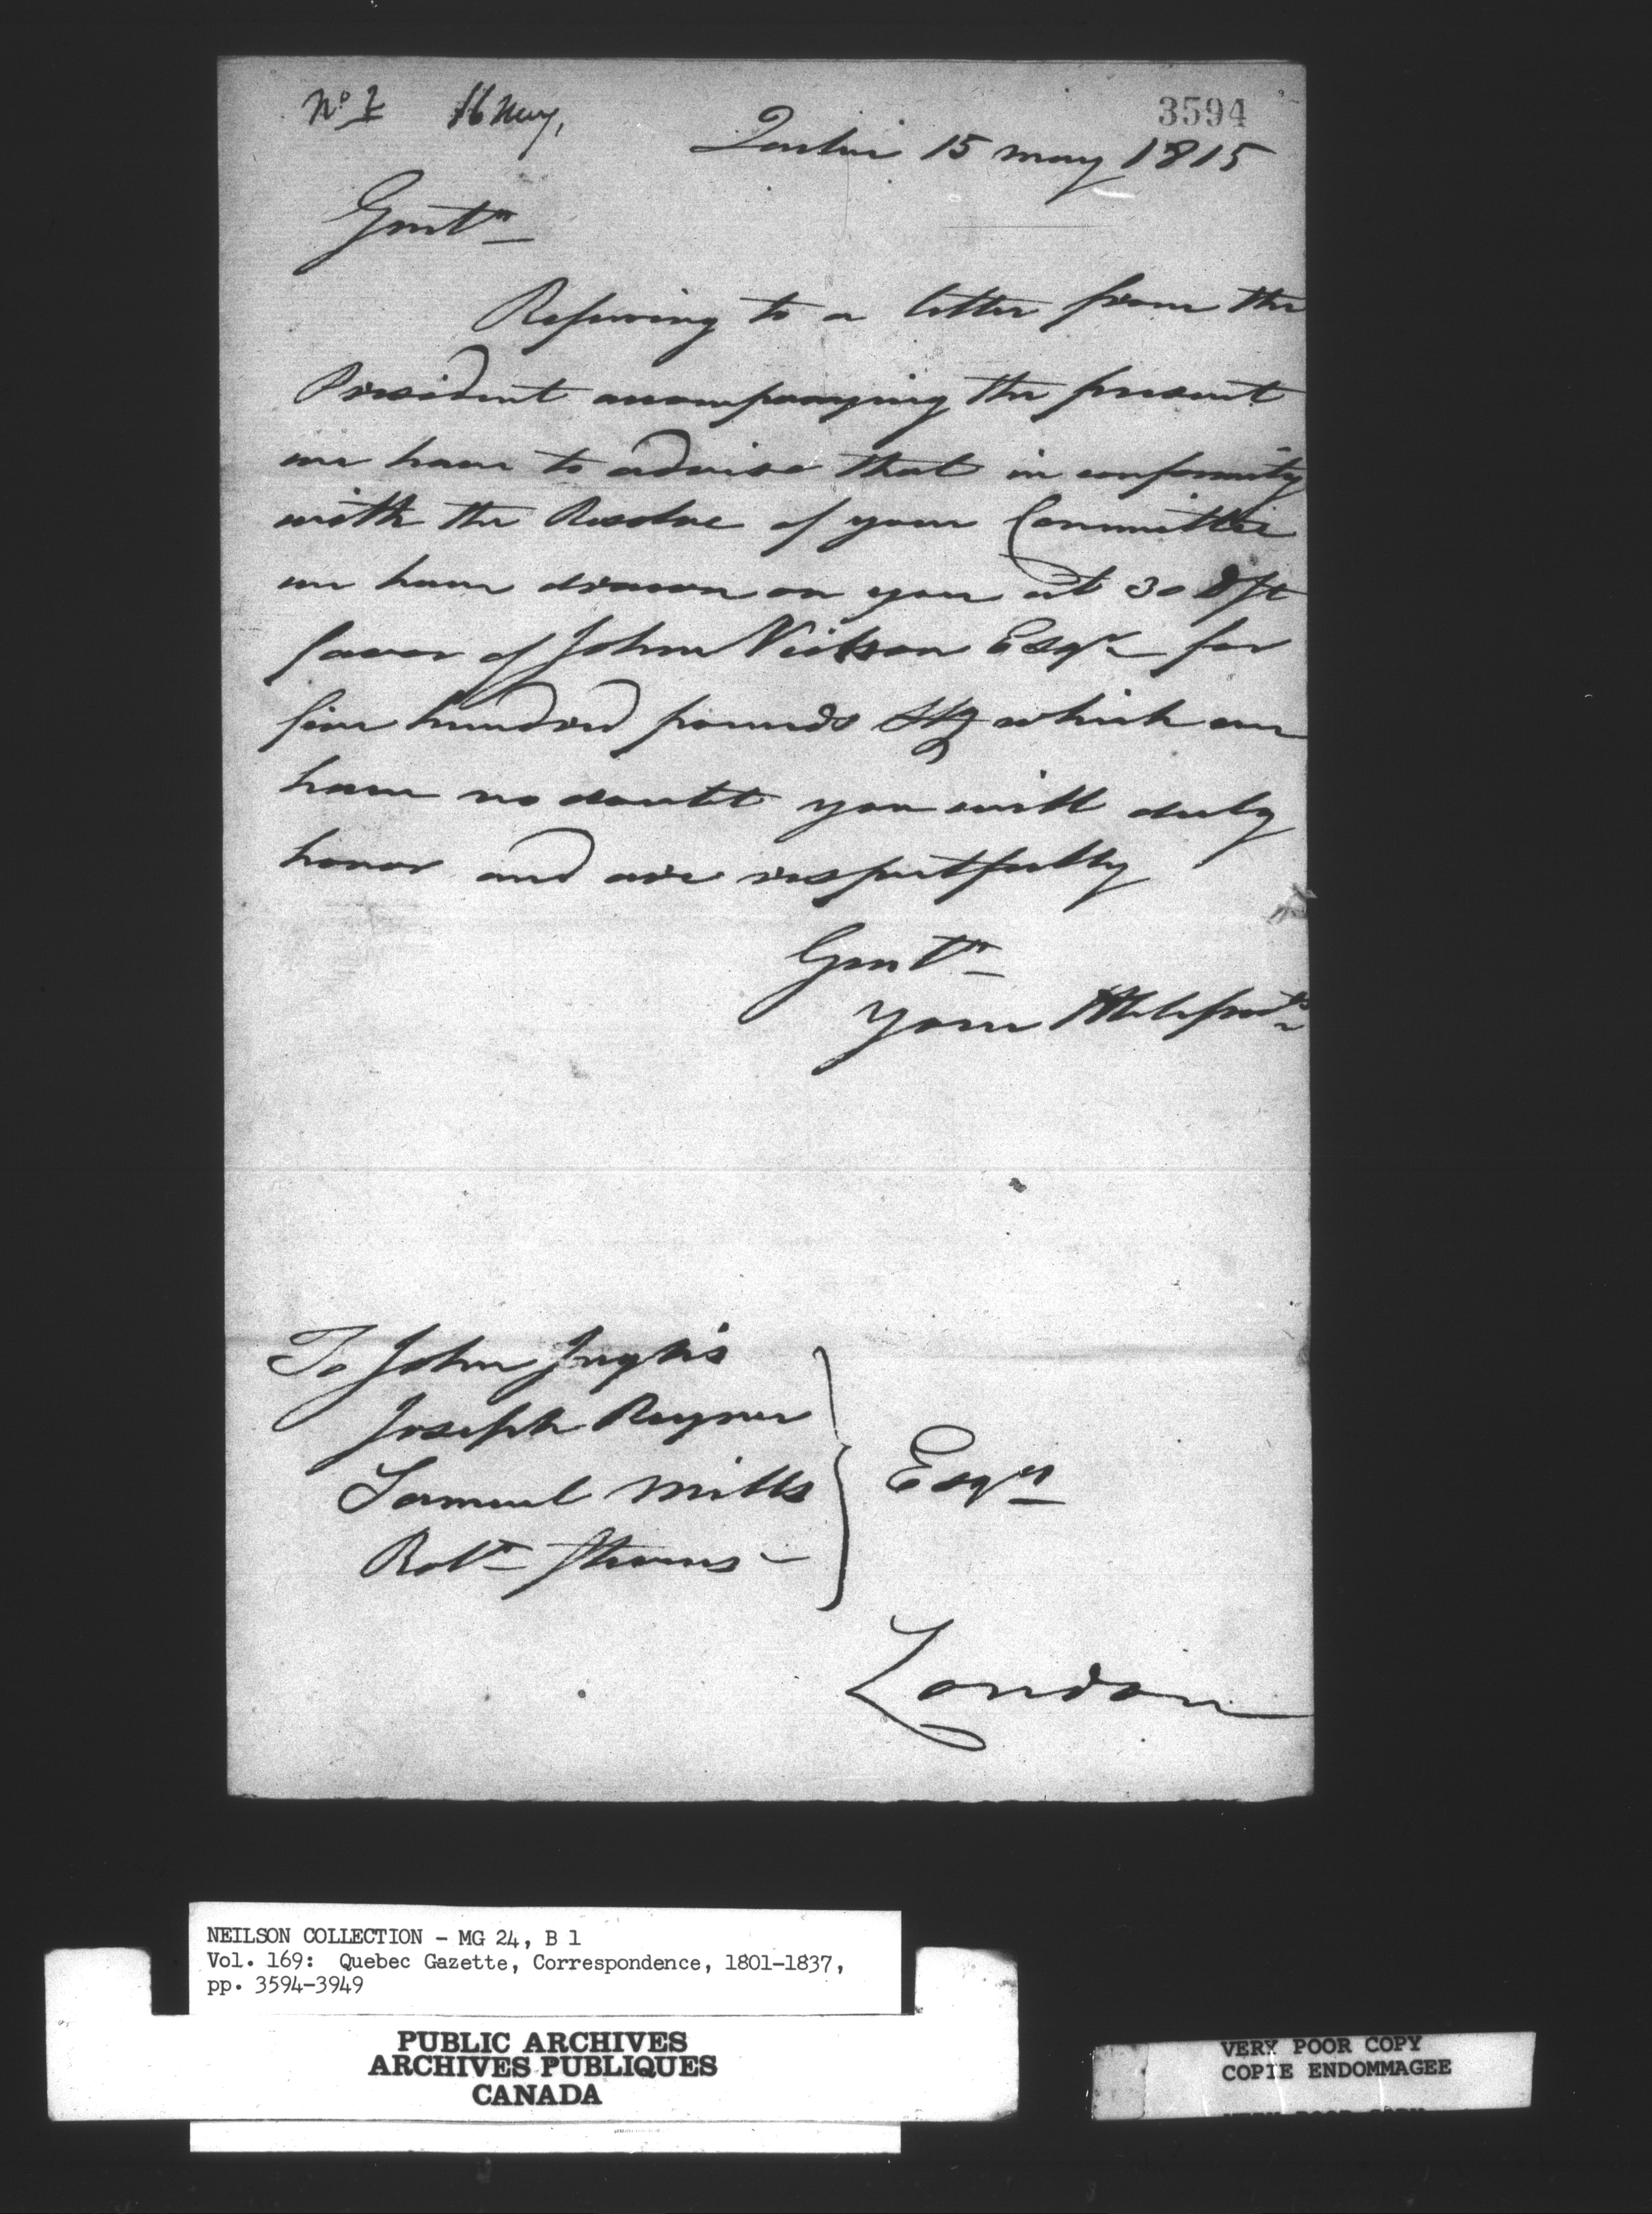 No 1 16 May,
3594
Quebec 15 may 1815
Gentn
Refering to a letter from the
President accompanying the present
we have to advise that in conformity
with the Resolve of your Committee
we have drawn on you at 30 d/st
favor of John Neilson Esqr for
five hundred pounds Stg which we
have no doubt you will duly
honor and are respectfully
Gentn
Your
To John Inglis
Joseph Rayner
Samuel Mills
Robt Stevens
Esqrs
London
NEILSON COLLECTION - MG 24, B 1
Vol. 169: Quebec Gazette, Correspondence, 1801-1837,
pp. 3594-3949
PUBLIC ARCHIVES
ARCHIVES PUBLIQUES
CANADA
VERY POOR COPY
COPIE ENDOMMAGEE